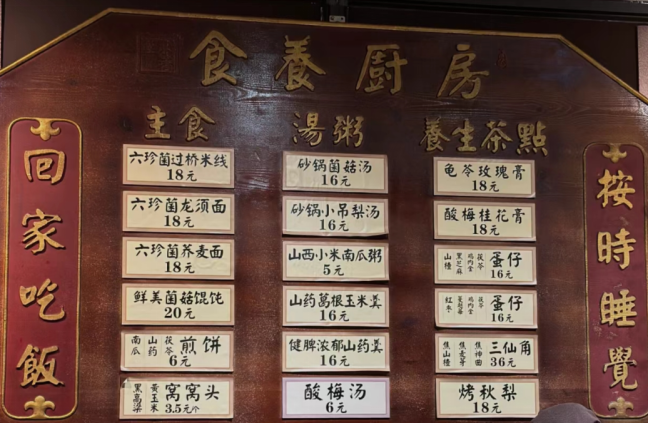 食養厨房
回家吃飯
主食
六珍菌过桥米线
18元
六珍菌龙须面
18元
六珍菌荞麦面
18元
鲜美菌菇馄饨
20元
南瓜 山药 茯苓 煎饼
6元
黑高粱 黄玉米 窝窝头
3.5元/个
湯粥
砂锅菌菇汤
16元
砂锅小吊梨汤
16元
山西小米南瓜粥
5元
山药葛根玉米羹
16元
健脾浓郁山药羹
16元
酸梅汤
6元
養生茶點
龟苓玫瑰膏
18元
酸梅桂花膏
18元
山楂 黑芝麻 鸡内金 茯苓 蛋仔
16元
红枣 鸡内金 茯苓 蛋仔
16元
焦山楂 焦麦芽 焦神曲 三仙角
36元
烤秋梨
18元
按時睡覺